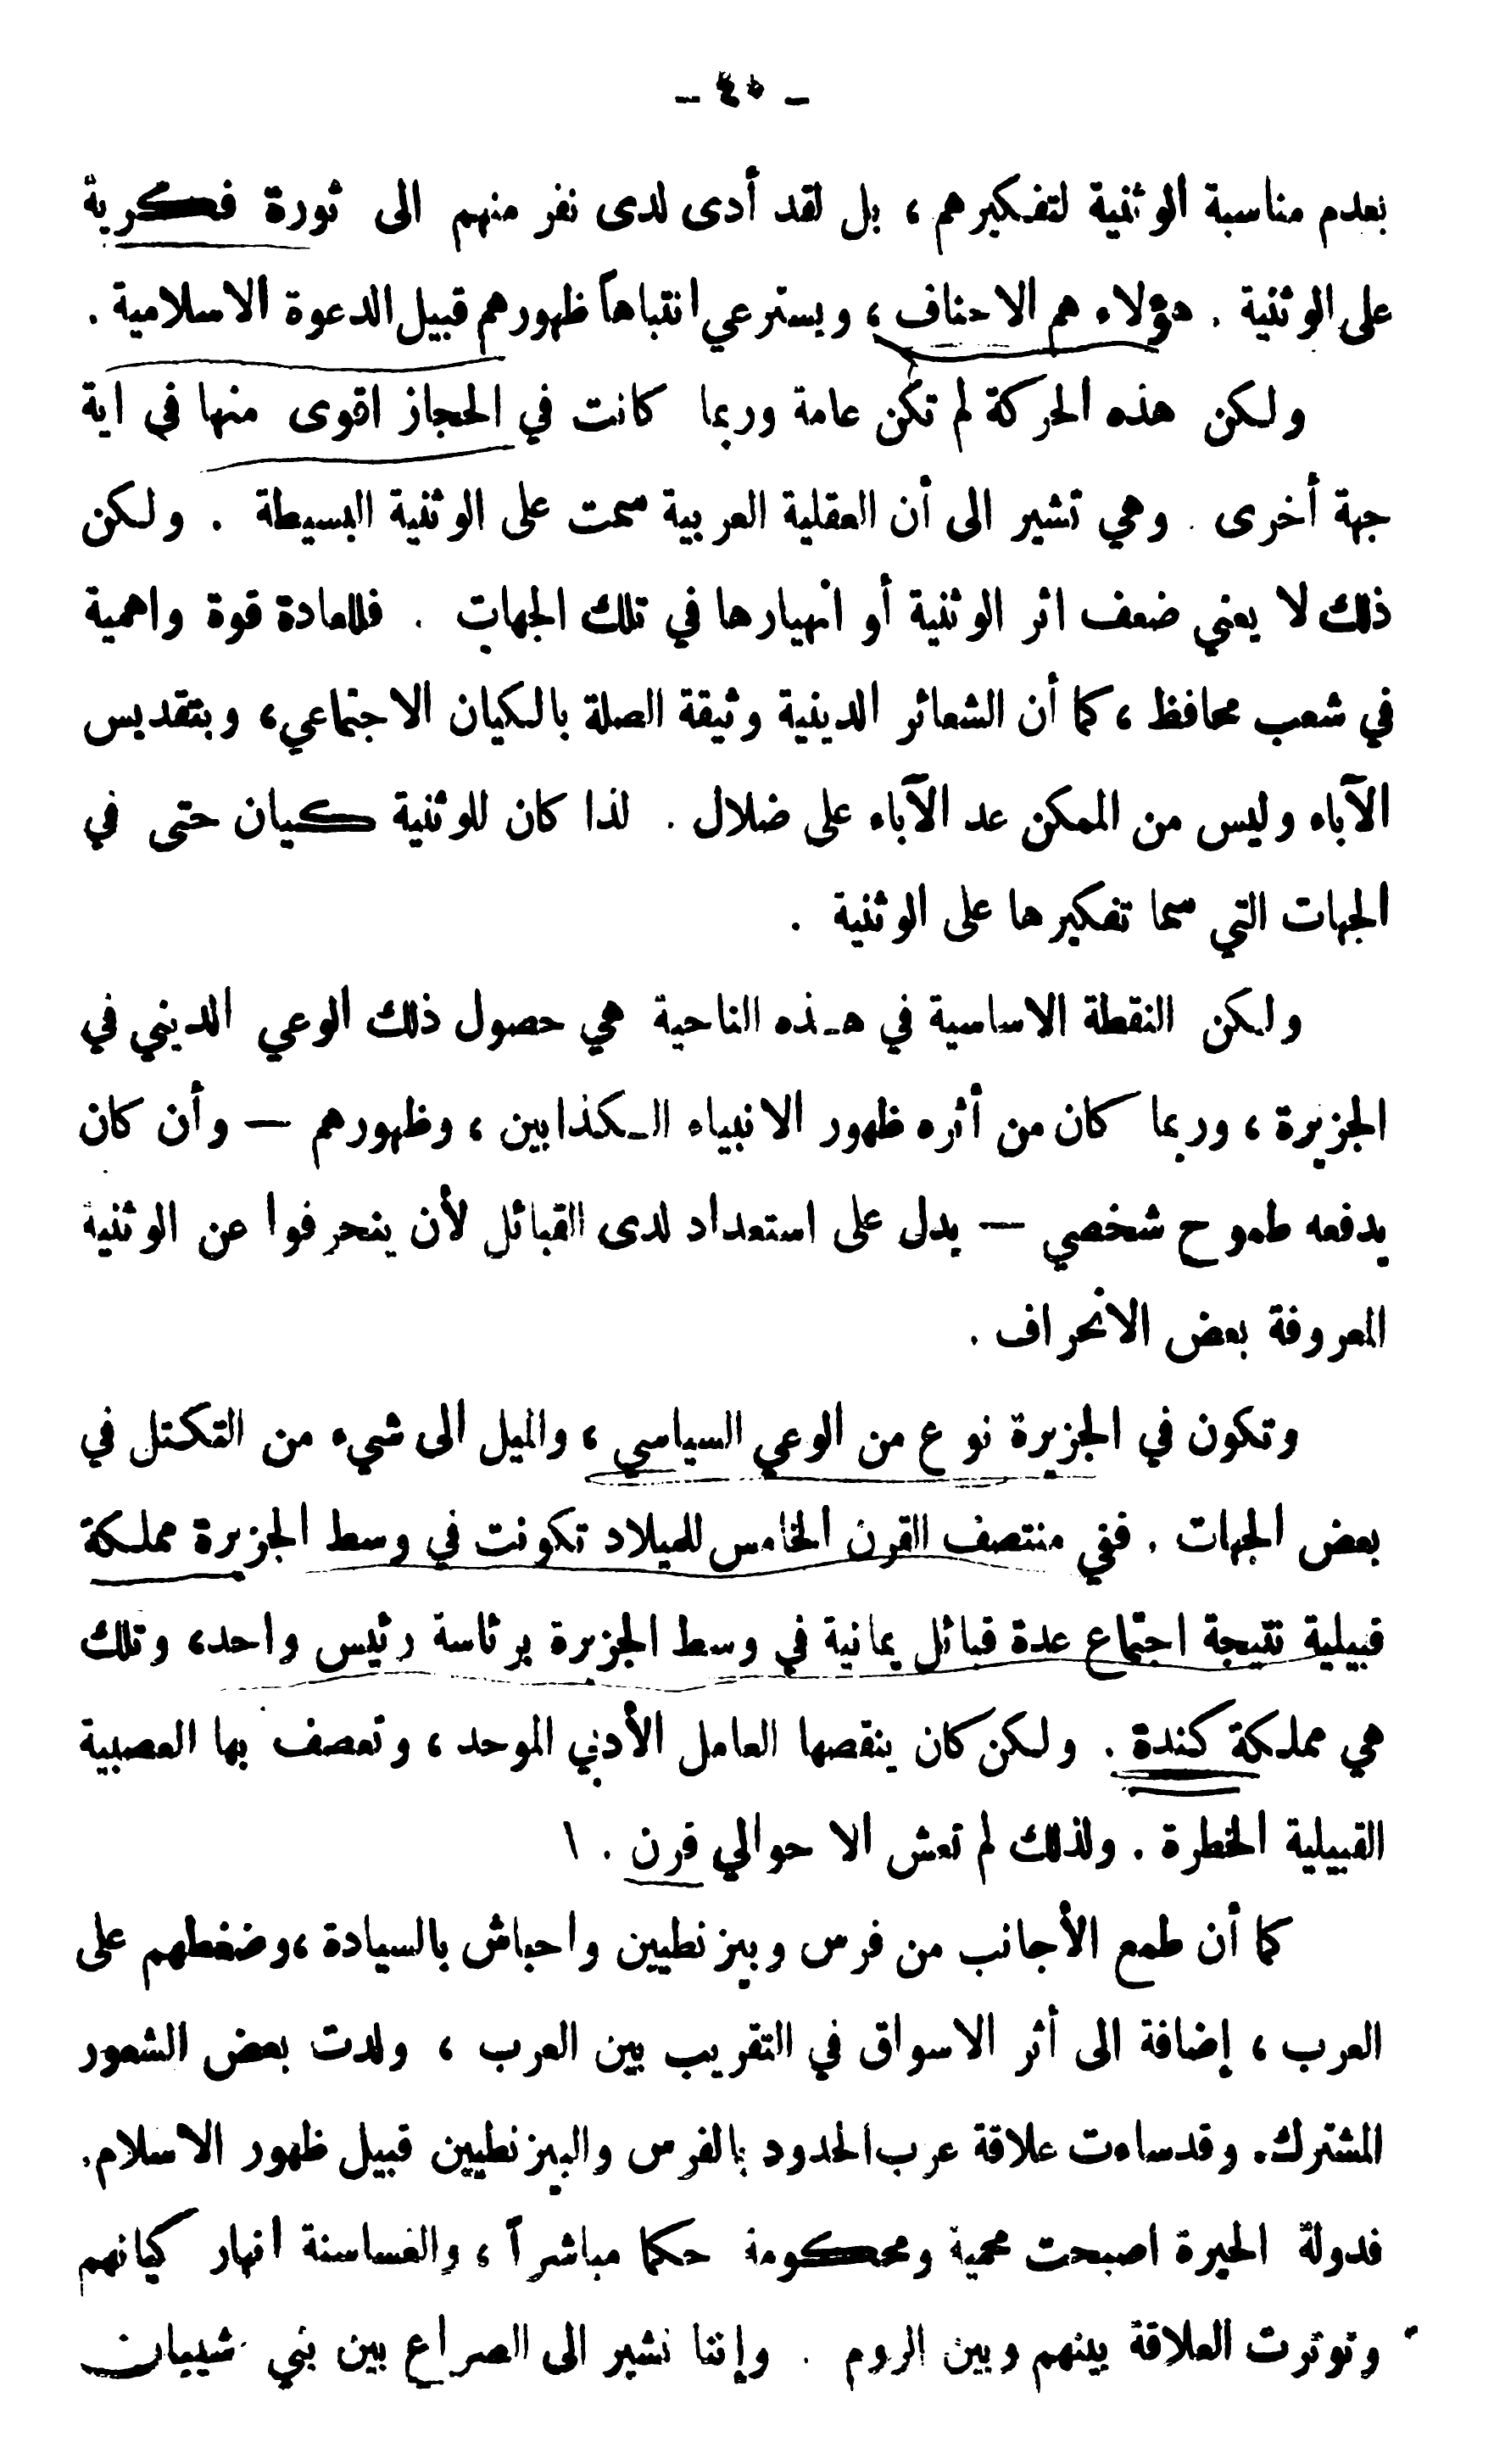 - ٤٥ -
بعدم مناسبة الوثنية لتفكيرهم ، بل لقد أدى لدى نفر منهم الى ثورة فكرية
على الوثنية . هؤلاء هم الاحناف ، ويسترعي انتباهاً ظهورهم قبيل الدعوة الاسلامية .
ولكن هذه الحركة لم تكن عامة وربما كانت في الحجاز اقوى منها في اية
جهة أخرى . وهي تشير الى أن العقلية العربية سمت على الوثنية البسيطة . ولكن
ذلك لا يعني ضعف اثر الوثنية أو انهيارها في تلك الجهات . فللعادة قوة واهمية
في شعب محافظ ، كما أن الشعائر الدينية وثيقة الصلة بالكيان الاجتماعي ، وبتقديس
الآباء وليس من الممكن عد الآباء على ضلال . لذا كان للوثنية كيان حتى في
الجهات التي سما تفكيرها على الوثنية .
ولكن النقطة الاساسية في هذه الناحية هي حصول ذلك الوعي الديني في
الجزيرة ، وربما كان من أثره ظهور الانبياء الكذابين ، وظهورهم — وأن كان
يدفعه طموح شخصي — يدل على استعداد لدى القبائل لأن ينحرفوا عن الوثنية
المعروفة بعض الانحراف .
وتكون في الجزيرة نوع من الوعي السياسي ، والميل الى شيء من التكتل في
بعض الجهات . ففي منتصف القرن الخامس للميلاد تكونت في وسط الجزيرة مملكة
قبيلية نتيجة اجتماع عدة قبائل يمانية في وسط الجزيرة برئاسة رئيس واحد ، وتلك
هي مملكة كندة . ولكن كان ينقصها العامل الأدبي الموحد ، وتعصف بها العصبية
القبيلية الخطرة . ولذلك لم تعش الا حوالي قرن . ١
كما أن طمع الأجانب من فرس وبيزنطيين واحباش بالسيادة ، وضغطهم على
العرب ، إضافة الى أثر الاسواق في التقريب بين العرب ، ولدت بعض الشعور
المشترك . وقد ساءت علاقة عرب الحدود بالفرس والبيزنطيين قبيل ظهور الاسلام .
فدولة الحيرة اصبحت محمية ومحكومة حكما مباشراً ، والغساسنة انهار كيانهم
وتوترت العلاقة بينهم وبين الروم . وإننا نشير الى الصراع بين بني شيبان